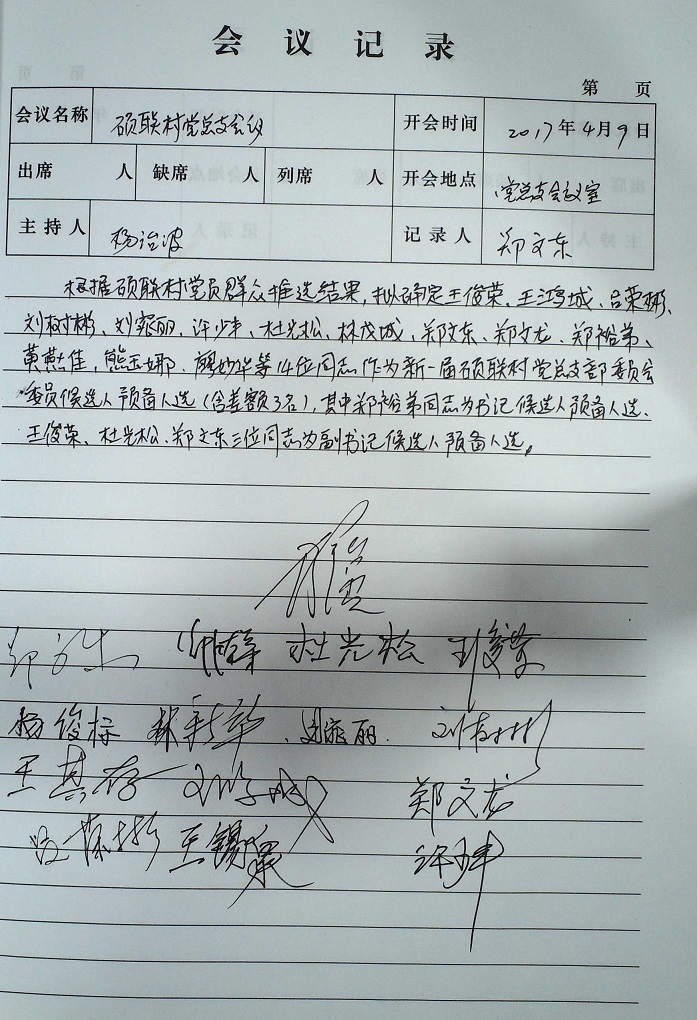 会议记录
第 页
会议名称 硕联村党总支会议 开会时间 2017年4月9日
出席 人 缺席 人 列席 人 开会地点 党总支会议室
主持人 杨治波 记录人 郑文东
根据硕联村党员群众推选结果,拟确定王俊荣、王鸿城、吕荣彬、
刘树彬、刘霓丽、许少丰、杜光松、林茂城、郑文东、郑文龙、郑裕弟、
黄燕佳,熊玉娜、廖妙华等14位同志作为新一届硕联村党总支部委员会
委员候选人预备人选(含差额3名),其中郑裕弟同志为书记候选人预备人选、
王俊荣、杜光松、郑文东三位同志为副书记候选人预备人选。
杜光松 王俊荣
杨俊标 林新华 刘霓丽 刘树彬
王其存 郑文龙
吕荣彬 王锡